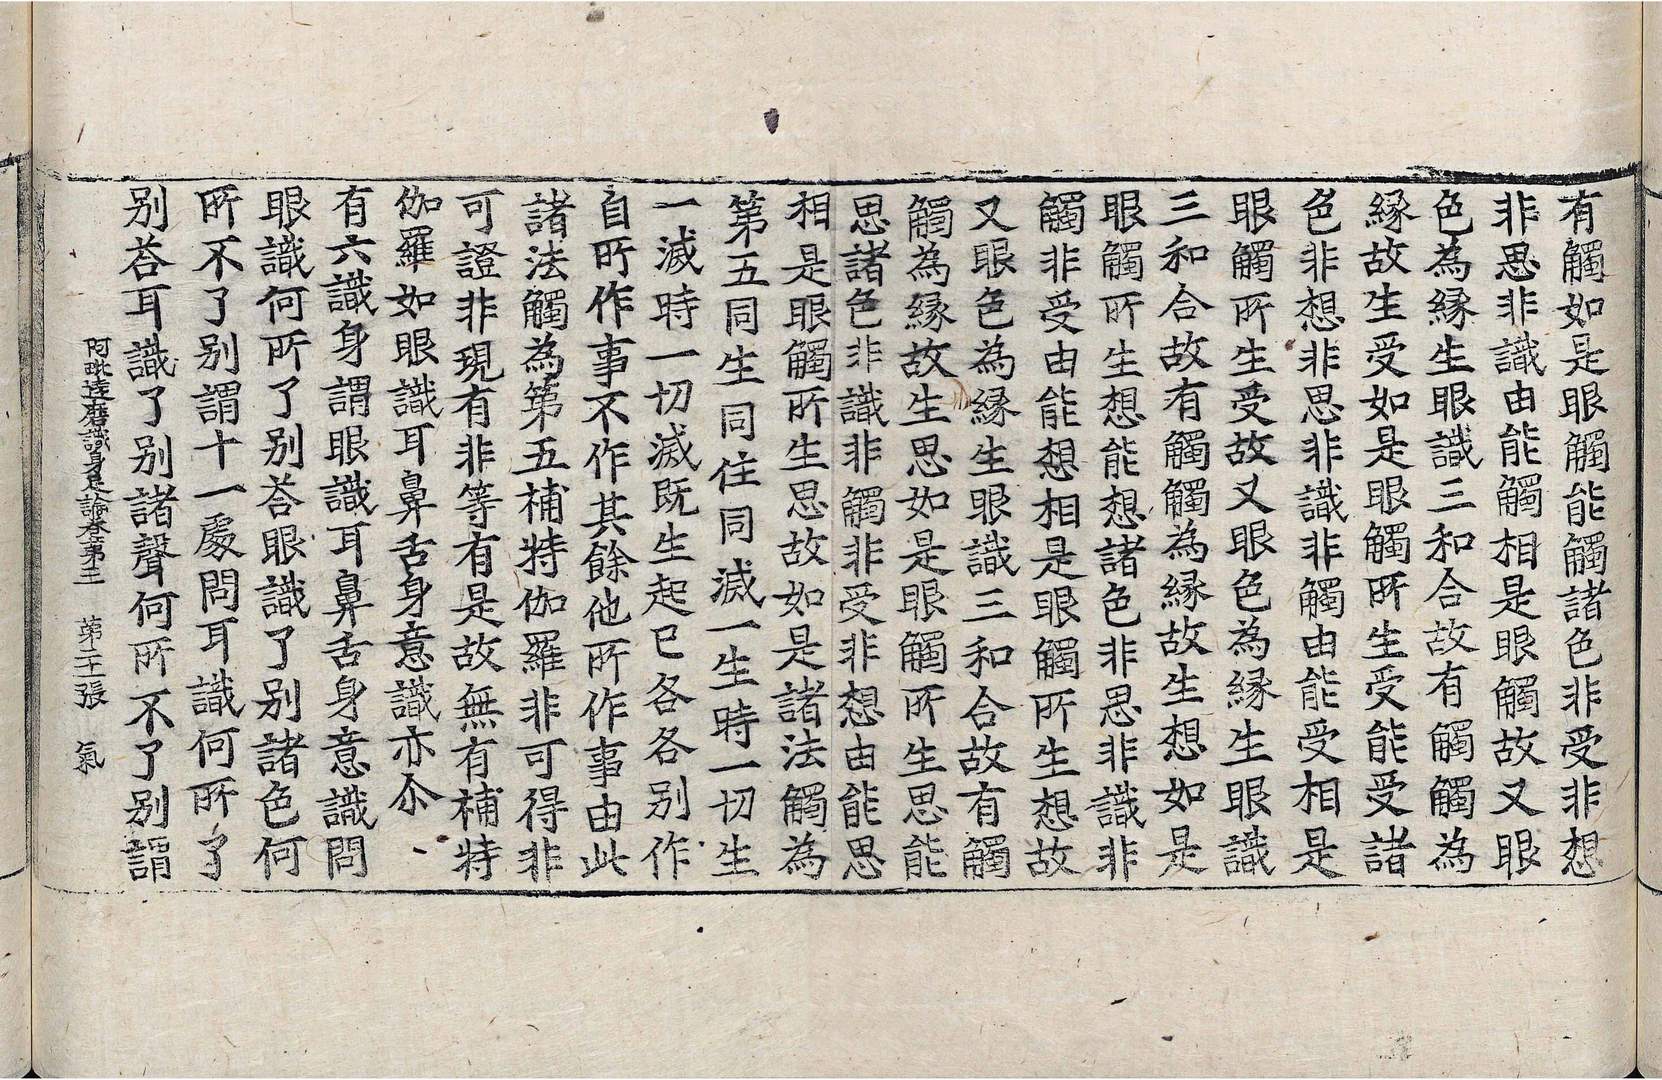 有觸如是眼觸能觸諸色非受非想
非思非識由能觸相是眼觸故又眼
色為緣生眼識三和合故有觸觸為
緣故生受如是眼觸所生受能受諸
色非想非思非識非觸由能受相是
眼觸所生受故又眼色為緣生眼識
三和合故有觸觸為緣故生想如是
眼觸所生想能想諸色非思非識非
觸非受由能想相是眼觸所生想故
又眼色為緣生眼識三和合故有觸
觸為緣故生思如是眼觸所生思能
思諸色非識非觸非受非想由能思
相是眼觸所生思故如是諸法觸為
第五同生同住同滅一生時一切生
一滅時一切滅既生起已各各別作
自所作事不作其餘他所作事由此
諸法觸為第五補特伽羅非可得非
可證非現有非等有是故無有補特
伽羅如眼識耳鼻舌身意識亦尒
有六識身謂眼識耳鼻舌身意識問
眼識何所了別荅眼識了別諸色何
所不了別謂十一處問耳識何所了
別荅耳識了別諸聲何所不了別謂
阿毗達磨識身足論卷第三 第二十張 氣